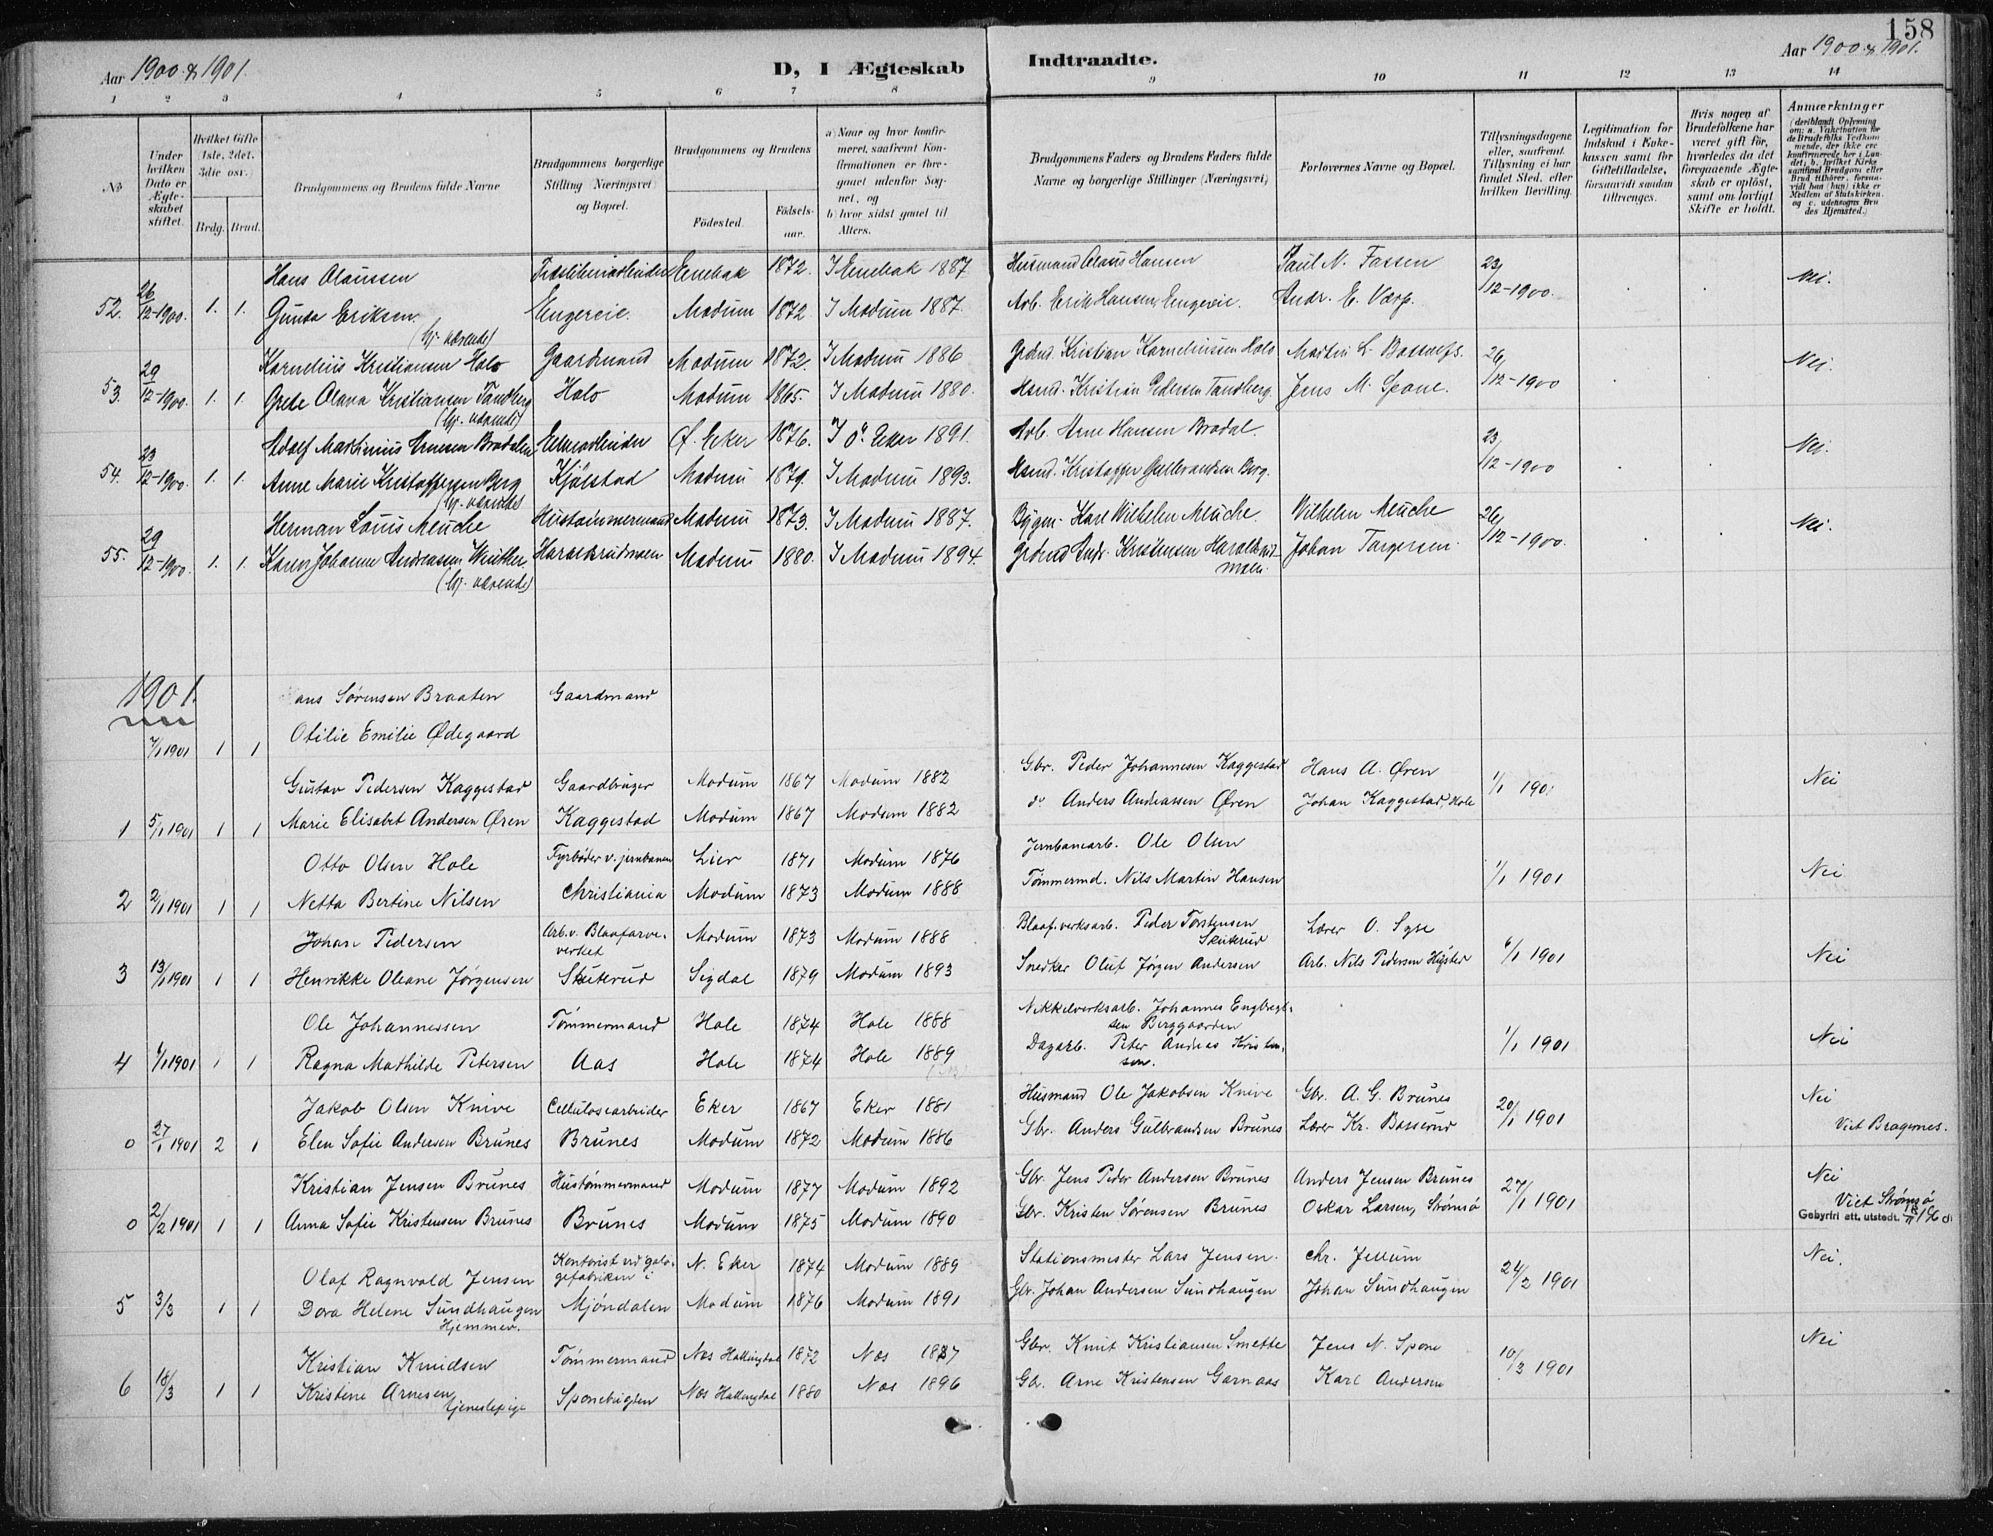 158
Aar 1900 & 1901.
D, I Ægteskab Indtraadte.
Aar 1900 & 1901.
1 2 3 4 5 6 7 8 9 10 11 12 13 14
No
Under hvilken Dato er Ægteskabet stiftet.
Hvilket Gifte 1ste, 2det, 3die osv.
Brdg. Brud.
Brudgommens og Brudens fulde Navne
Brudgommens borgerlige Stilling (Næringsvei) og Bopæl.
Brudgommens og Brudens
Fødested.
Fødselsaar.
a) Naar og hvor konfirmeret, saafremt Konfirmationen er foregaaet udenfor Sognet, og
b) hvor sidst gaaet til Alters.
Brudgommens Faders og Brudens Faders fulde Navne og borgerlige Stillinger (Næringsvei)
Forlovernes Navne og Bopæl.
Tillysningsdagene eller, saafremt Tillysning ei har fundet Sted, efter hvilken Bevilling.
Legitimation for Indskud i Enkekassen samt for Giftetilladelse, forsaavidt saadan tiltrænges.
Hvis nogen af Brudefolkene har været gift, hvorledes da det foregaaende Ægteskab er opløst, samt om lovligt Skifte er holdt.
Anmærkninger
Hans Olaussen Enebak 1872. I Enebak 1887. Husmand Olaus Hansen Paul N. Fossen 23/12-1900. Nei.
52. 26/12-1900. 1. 1. Gunda Eriksen Engereie. Modum 1872 I Modum 1887. Arb. Erik Hansen, Engereie. Andr. E. Værp.
(hj. værende)
Kornelius Kristiansen Holo Gaardmand Modum 1872. I Modum 1886 Grdmd. Kristian Korneliussen Holo Martin L. 26/12-1900 Nei.
53. 29/12-1900. 1. 1. Grete Olava Kristiansen Tandberg Holo Modum 1865. I Modum 1880. Hsmd. Kristian Pedersen Tandberg. Jens M. Spone.
(hj. værende)
Adolf Martinius Arnesen Bradalen Ø. Eker 1876. I Ø. Eker 1891. Arb. Arne Hansen Bradal. 23/12-1900 Nei.
54. 23/12-1900. 1. 1. Anne Marie Kristoffersen Berg Kjølstad Modum 1879. I Modum 1893. Hsmd. Kristoffer Gulbrandsen Berg.
(hj. værende)
Herman Louis Meuche Hustømmermand Modum 1873. I Modum 1887. Bygm. Karl Wilhelm Meuche. Wilhelm Meuche 26/12-1900. Nei.
55. 29/12-1900. 1. 1. Karen Johanne Andreassen Modum 1880. I Modum 1894. Grdmd Andr. Kristensen Johan Torgersen.
(hj. værende)
1901.
ans Sørensen Braaten Gaardmand
Otilie Emilie Ødegaard
7/1 1901 1 1
Gustav Pedersen Kaggestad Gaardbruger Modum 1867 Modum 1882 Gbr. Peder Johannesen Kaggestad Hans A. Øren 1/1 1901 Nei
1 5/1 1901 1 1 Marie Elisabet Andersen Øren Kaggestad Modum 1867 Modum 1882 do Anders Andreassen Øren Johan Kaggestad, Hole
Otto Olsen Hole Fyrbøder v. jernbanen Lier 1871 Modum 1876 Jernbanearb. Ole Olsen 1/1 1901 Nei
2 2/1 1901 1 1 Netta Bertine Nilsen Christiania Modum 1873 Modum 1888 Tømmermd. Nils Martin Hansen
Johan Pedersen Arb. v. Blaafarveverket Modum 1873 Modum 1888 Blaaf.verksarb. Peder Torstensen Skuterud Lærer O. Syse 6/1 1901 Nei
3 13/1 1901 1 1 Henrikke Oleane Jørgensen Skuterud Sigdal 1879 Modum 1893 Snedker Oluf Jørgen Andersen Arb. Nils Pedersen
Ole Johannessen Tømmermand Hole 1874 Hole 1888 Nikkelverksarb. Johannes Engbregtsen Berggaarden 1/1 1901 Nei
4 1/1 1901 1 1 Ragna Mathilde Petersen Aas Hole 1874 Hole 1889 Dagarb. Peter Andreas Kristensen.
Jakob Olsen Knive Cellulosearbeider Eker 1867 Eker 1881 Husmand Ole Jakobsen Knive Gbr. A. G. Brunes 20/1 1901 Nei
0 27/1 1901 2 1 Elen Sofie Andersen Brunes Brunes Modum 1872 Modum 1886 Gbr. Anders Gulbrandsen Brunes Lærer Kr. Bosserud Viet Bragernes.
Kristian Jensen Brunes Hustømmermand Modum 1877 Modum 1892 Gbr. Jens Peder Andersen Brunes Anders Jensen Brunes 27/1 1901 Nei
0 2/2 1901 1 1 Anna Sofie Kristensen Brunes Brunes Modum 1875 Modum 1890 Gbr. Kristen Sørensen Brunes Oskar Larsen, Strømsø Viet Strømsø
Gebyrfri att. utstedt.
Olaf Ragnvald Jensen Kontorist ved N. Eker 1874 Modum 1889 Stationsmester Lars Jensen. Chr. Jellum 24/2 1901 Nei.
5 3/3 1 1 Dora Helene Sundhaugen Mjøndalen Modum 1876 Modum 1891 Gbr. Johan Andersen Sundhaugen Johan Sundhaugen
Hjemmev.
Kristian Knudsen Tømmermand Nes Hallingdal 1872 Nes 1887 Gbr. Knut Kristiansen Smette Jens N. Spone 10/3 1901 Nei
6 18/3 1 1 Kristine Arnesen Sponebygden Nes Hallingdal 1880 Nes 1896 Gb. Arne Kristensen Garnaas Karl Andersen
tjenestepige